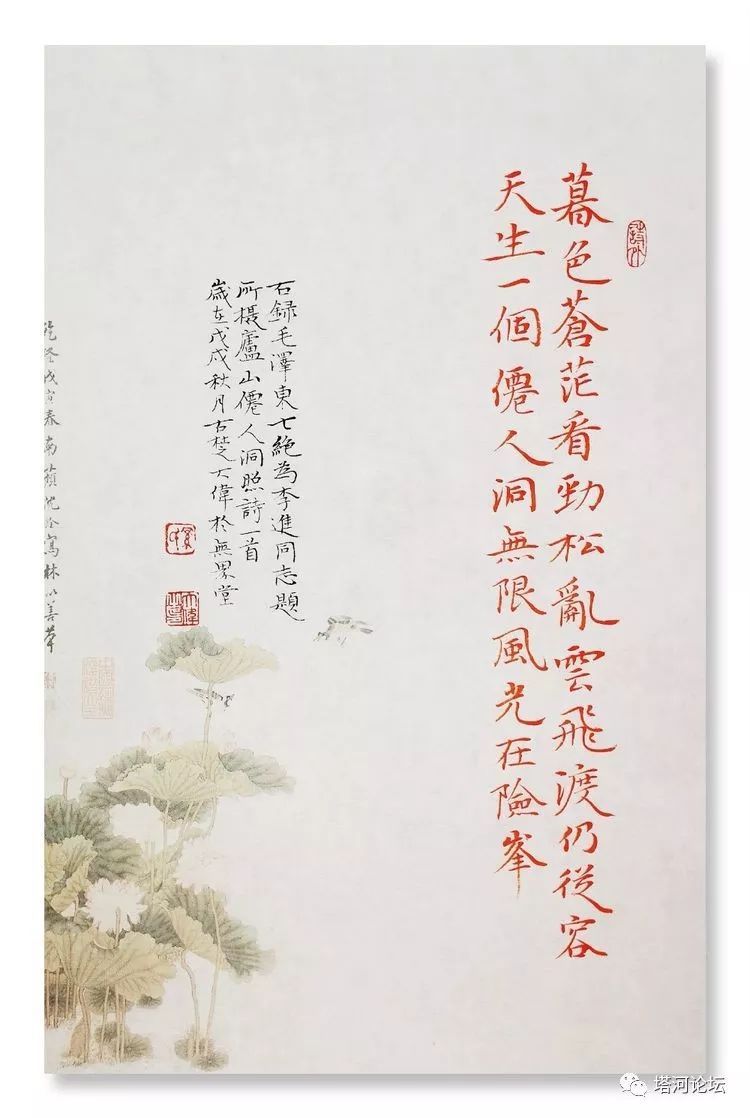 暮色蒼茫看勁松亂雲飛渡仍從容
天生一個僊人洞無限風光在險峯
右録毛澤東七絕為李進同志題
所摄廬山僊人洞照詩一首
歲在戊戌秋月古楚大偉於無界堂
乾隆戊寅春南蘋沈銓寫林以善筆
塔河论坛